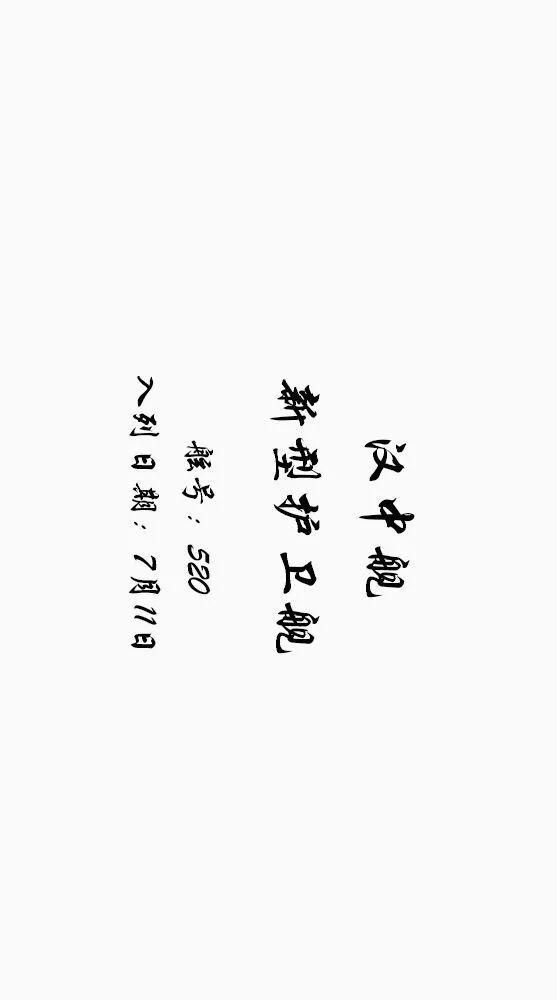 汉中舰
新型护卫舰
舷号：520
入列日期：7月11日